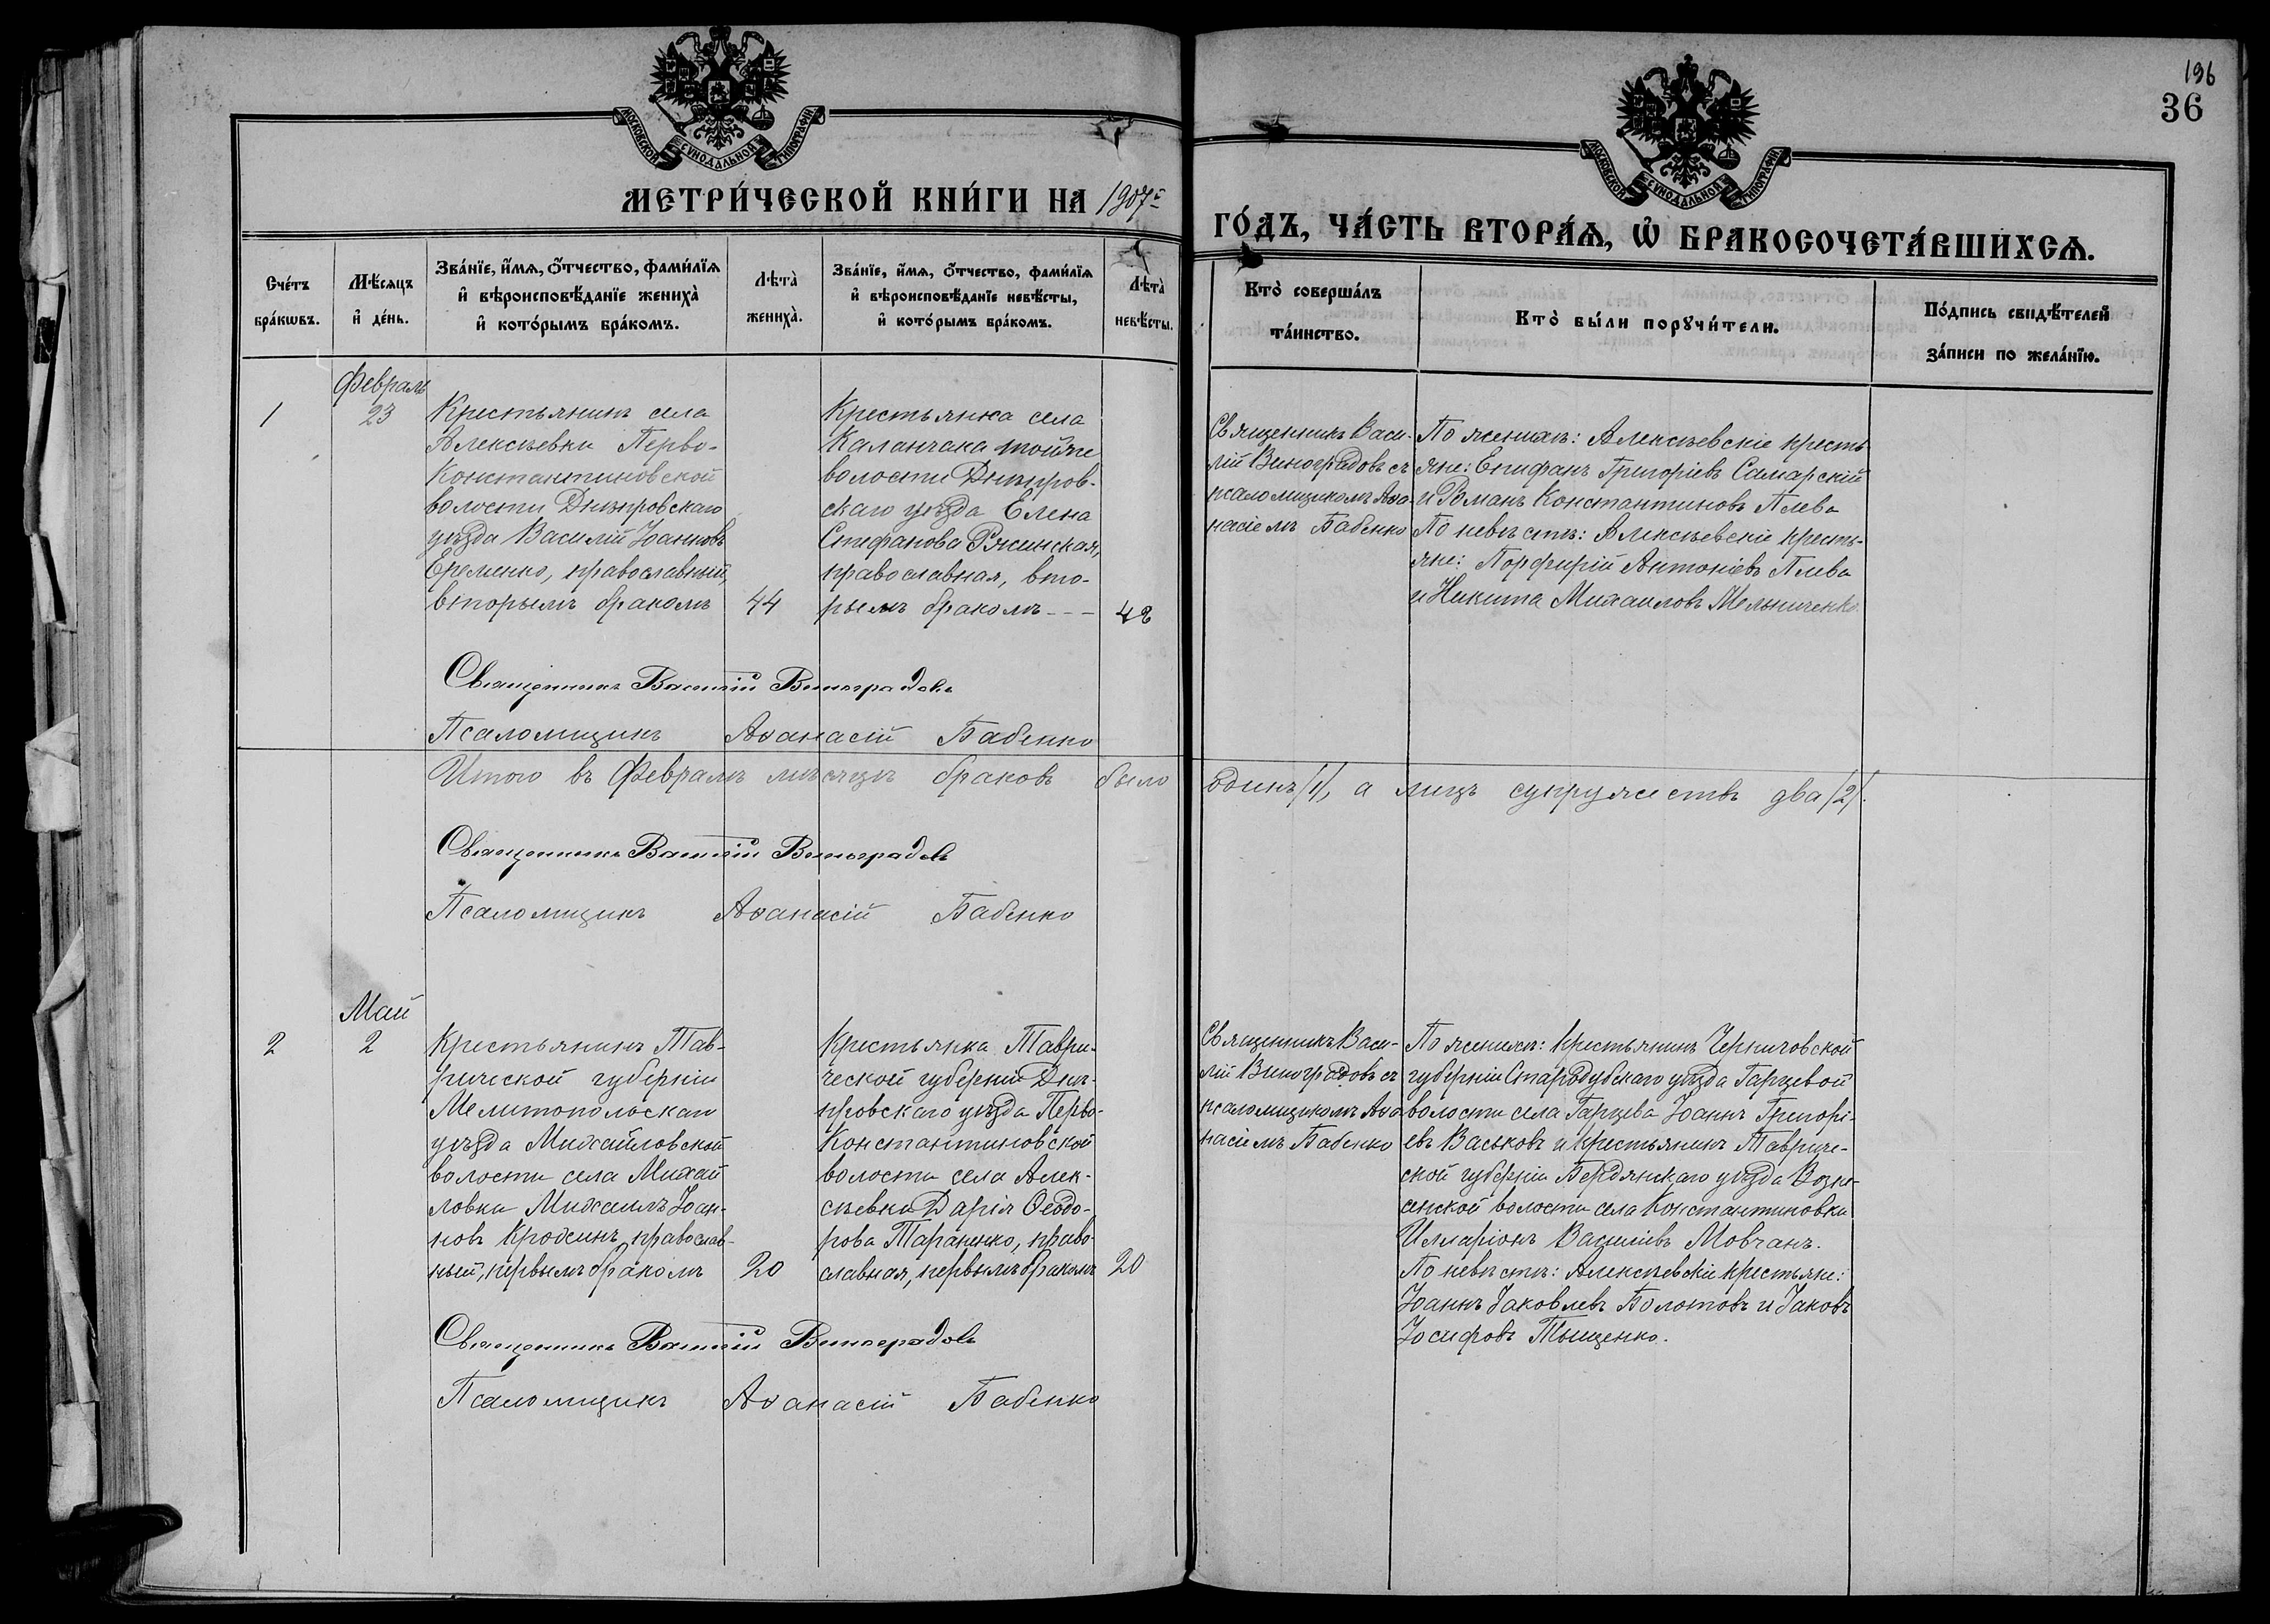 196
36
МОСКОВСКОЙ СУНОДАЛЬНОЙ ТИПОГРАФІИ
МОСКОВСКОЙ СУНОДАЛЬНОЙ ТИПОГРАФІИ
МЕТРИ́ЧЕСКОЙ КНИ́ГИ НА 1907й
ГО́ДЪ, ЧА́СТЬ ВТОРА́Ѧ, Ѡ БРАКОСОЧЕТА́ВШИХСѦ.
Сче́тъ бра́кѡвъ.
Мѣ́сяцъ и де́нь.
Зва́нїе, и́мѧ, ѻ́тчество, фами́лїѧ
и҆ вѣроисповѣ́данїе жениха̀
и҆ кото́рымъ бра́комъ.
Лѣта̀ жениха̀.
Зва́нїе, и́мѧ, ѻ́тчество, фами́лїѧ
и҆ вѣроисповѣ́данїе невѣ́сты,
и҆ кото́рымъ бра́комъ.
Лѣта̀ невѣ́сты.
Кто̀ соверша́лъ
та́инство.
Кто̀ бы́ли порꙋчи́тели.
По́дпись свидѣ́телей
за́писи по жела́нїю.
Февраль
1
23
Крестьянинъ села
Алексѣевки Перво-
Константиновской
волости Днѣпровскаго
уѣзда Василій Іоанновъ
Еременко, православный,
вторымъ бракомъ
44
Крестьянка села
Каланчака тойже
волости Днѣпров-
скаго уѣзда Елена
Стефанова Ряжинская,
православная, вто-
рымъ бракомъ---
42
Священникъ Васи-
лій Виноградовъ съ
псаломщикомъ Аѳа-
насіемъ Бабенко
По женихѣ: Алексѣевскіе кресть
яне: Епифанъ Григоріевъ Самарскій
и Романъ Константиновъ Плева
По невѣстѣ: Алексѣевскіе кресть-
яне: Порфирій Антоніевъ Плева
и Никита Михаиловъ Мельниченко.
Священникъ Василій Виноградовъ
Псаломщикъ Аѳанасій Бабенко
Итого въ Февралѣ мѣсяцѣ браковъ было одинъ /1/, а лицъ супружествъ два /2/.
Священникъ Василій Виноградовъ
Псаломщикъ Аѳанасій Бабенко
Май
2
2
Крестьянинъ Тав-
рической губерніи
Мелитопольскаго
уѣзда Михайловской
волости села Михай
ловки Михаилъ Іоан-
новъ православ-
ный, первымъ бракомъ
20
Крестьянка Таври-
ческой губерніи Днѣ-
провскаго уѣзда Перво-
Константиновской
волости села Алек-
сѣевки Дарія Ѳеодо-
рова Тараненко, право-
славная, первымъ бракомъ
20
Священникъ Васи-
лій Виноградовъ съ
псаломщикомъ Аѳа
насіемъ Бабенко
По женихѣ: крестьянинъ Черниговской
губерніи Стародубскаго уѣзда Гарцевой
волости села Гарцева Іоаннъ Григорі-
евъ Васьковъ и крестьянинъ Тавриче-
ской губерніи Бердянскаго уѣзда Возне-
сенской волости села Константиновки
Илларіонъ Василіевъ Мовчанъ.
По невѣстѣ: Алексѣевскіе крестьяне:
Іоаннъ Іаковлевъ Болотовъ и Іаковъ
Іосифовъ Тыщенко.
Священникъ Василій Виноградовъ
Псаломщикъ Аѳанасій Бабенко